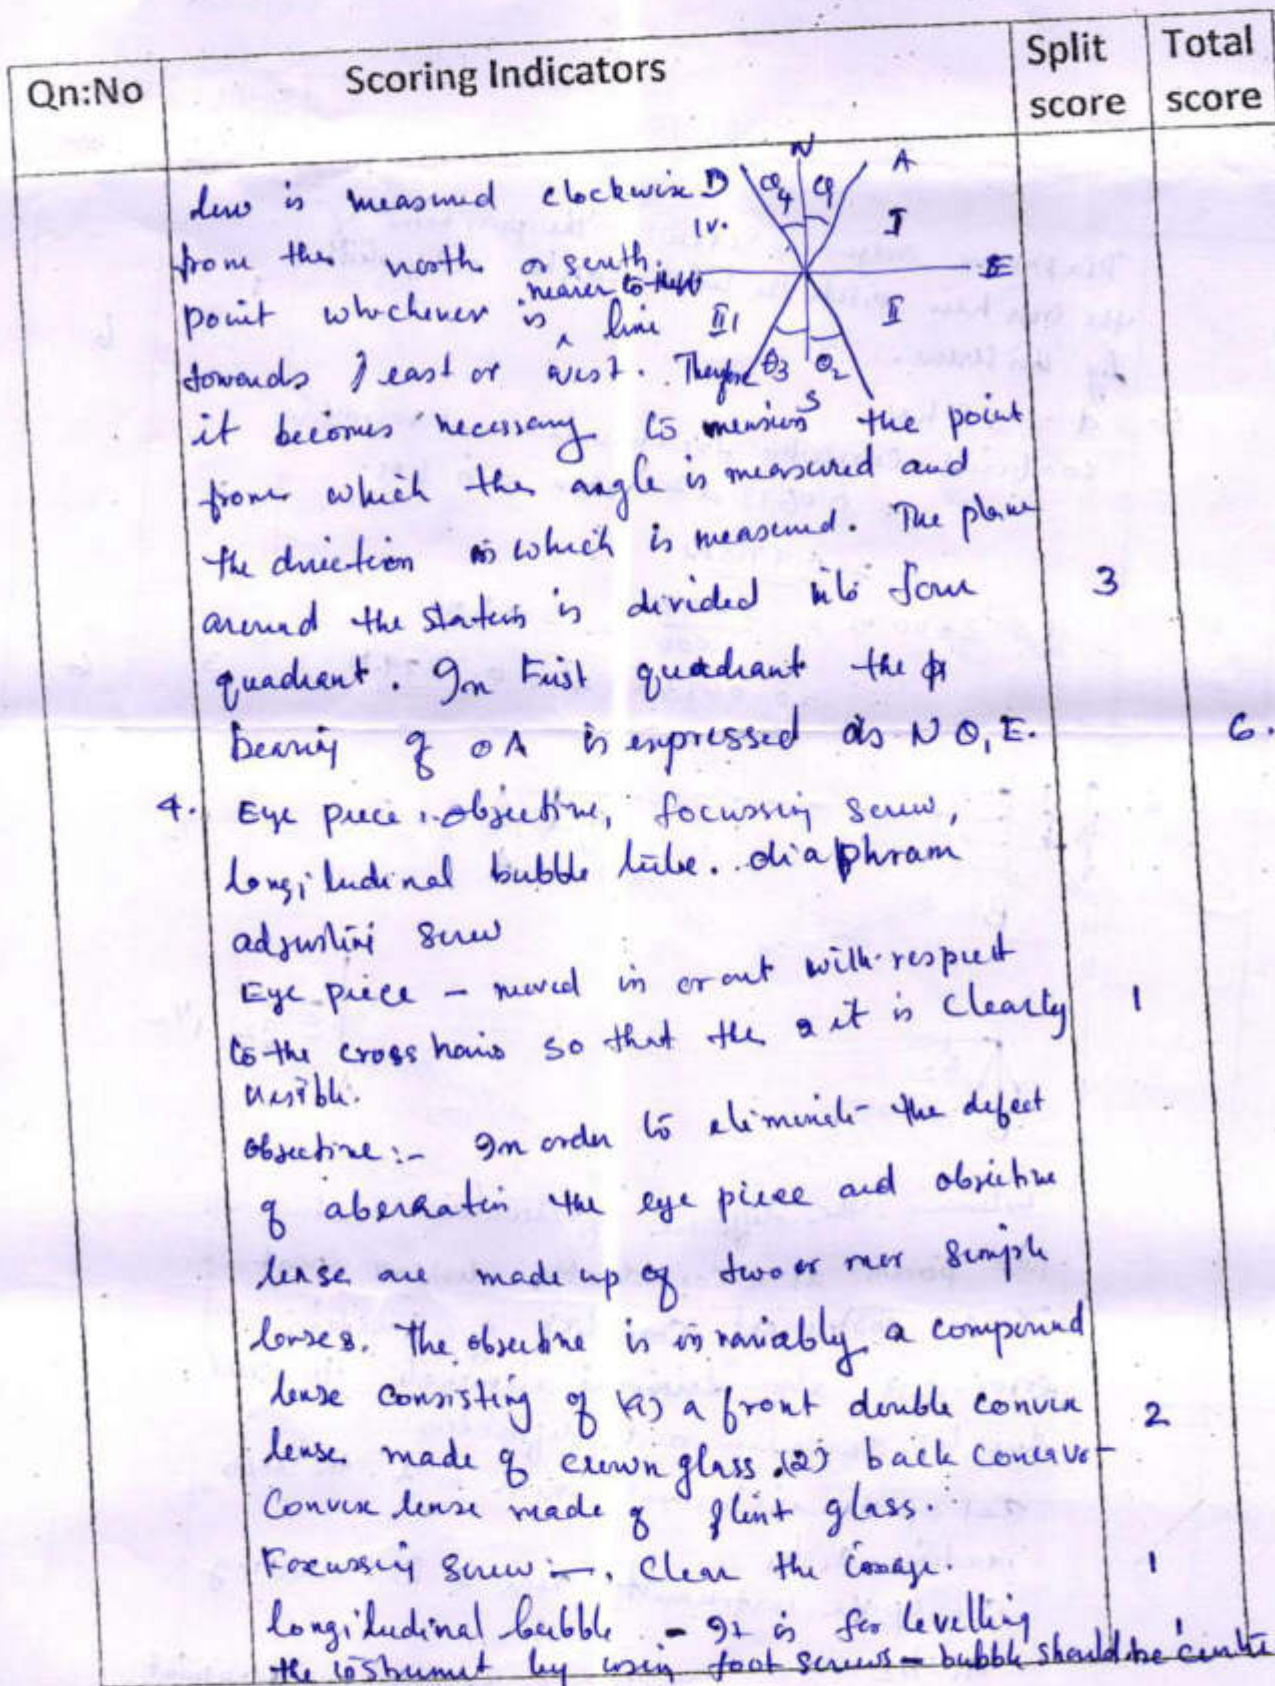 Qn:No Scoring Indicators Split score Total score
line is measured clockwise
from the north or south.
point whichever is nearer to the line
towards east or west. Therefore
it becomes necessary to mension the point
from which the angle is measured and
the direction in which is measured. The plane
around the station is divided into four 3
quadrant. In First quadrant the
bearing of OA is expressed as N θ, E. 6.
N A D θ4 θ1
IV. I
W E
III II
θ3 θ2
S
4. Eye piece, objective, focussing screw,
longitudinal bubble tube. diaphram
adjusting screw
Eye piece – moved in or out with respect
to the cross hairs so that the it is clearly 1
visible.
objective:- In order to eliminate the defect
of aberration the eye piece and objective
lense are made up of two or mor simple
lenses. The objective is invariably a compound
lense consisting of (1) a front double convex 2
lense made of crown glass. (2) back concavo-
Convex lense made of flint glass.
Focussing screw:- Clear the image. 1
longitudinal bubble - It is for levelling 1
the instrument by using foot screws – bubble should be centre